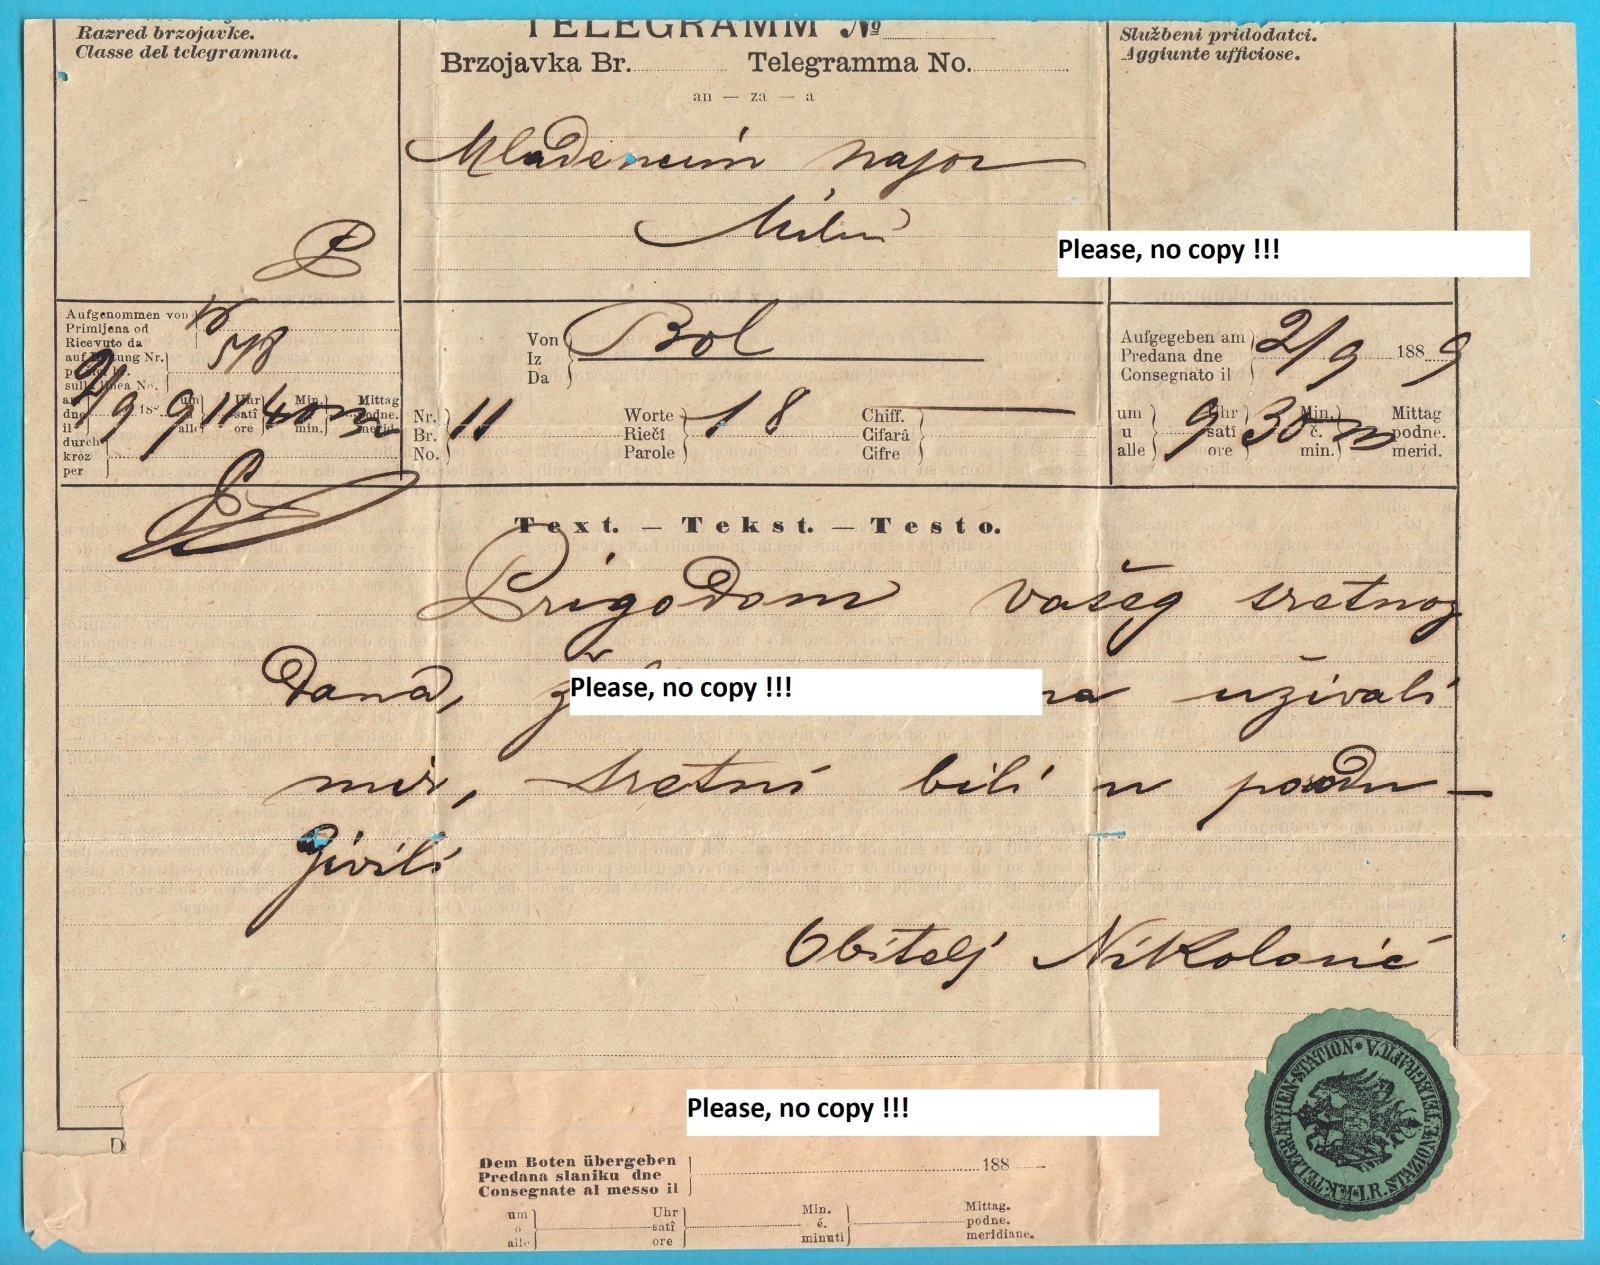 Razred brzojavke.
Classe del telegramma.
TELEGRAMM №
Brzojavka Br. Telegramma No.
an — za — a
Službeni pridodatci.
Aggiunte ufficiose.
Mladencim Major
Milni
Please, no copy !!!
Aufgenommen von
Primljena od
Ricevuto da
auf Nr.
sulla linea No.
518
2/9 188 9 um Uhr 11 Min. 40 Mittag
dne satî podne.
il alle ore min. merid.
durch
kroz
per
Von
Iz
Da
Bol
Nr.
Br.
No.
11
Worte
Riečî
Parole
18
Chiff.
Cifarâ
Cifre
Aufgegeben am
Predana dne
Consegnato il
2/9 188 9
um Uhr Min. Mittag
u 9 satî 30 č. m podne.
alle ore min. merid.
Text. — Tekst. — Testo.
Prigodom vašeg sretnog
dana, uživali
mir, sretni bili u porodu
živili
Obitelj Nikolorić
Please, no copy !!!
Please, no copy !!!
D
Dem Boten übergeben
Predana slaniku dne
Consegnate al messo il
188
um Uhr Min. Mittag.
o satî é. podne.
alle ore minuti meridiane.
K.K. TELEGRAPHEN-STATION * I.R. STAZIONE TELEGRAFICA